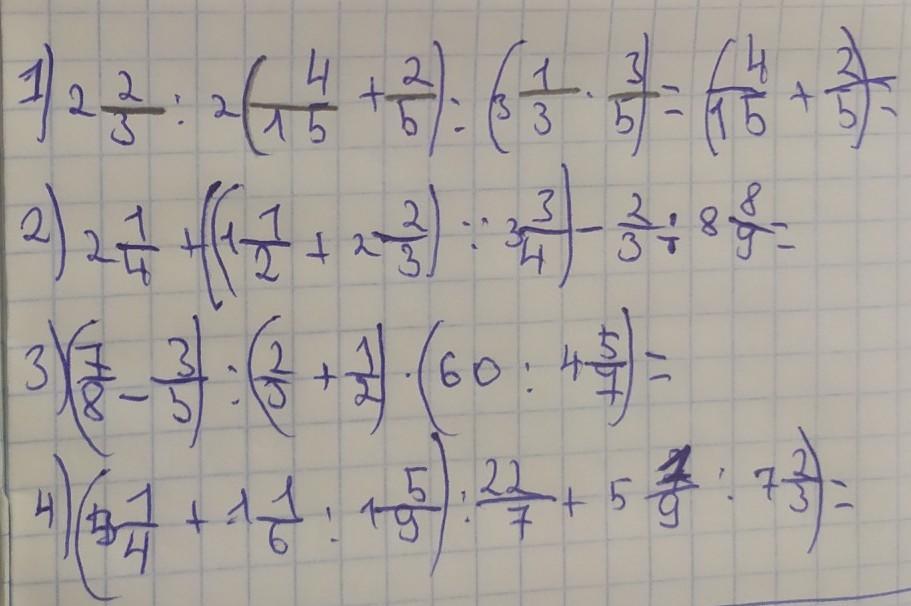 1) 2 2/3 : 2 (4/15 + 2/5) : (3 1/3 · 3/5) = (4/15 + 2/5) =
2) 2 1/4 + ((1 1/2 + 2 2/3) : 3 3/4) - 2/3 : 8 8/9 =
3) (7/8 - 3/5) : (2/5 + 1/2) · (60 : 4 5/7) =
4) (5 1/4 + 1 1/6 : 1 5/9) : 22/7 + 5 1/9 : 7 2/3) =